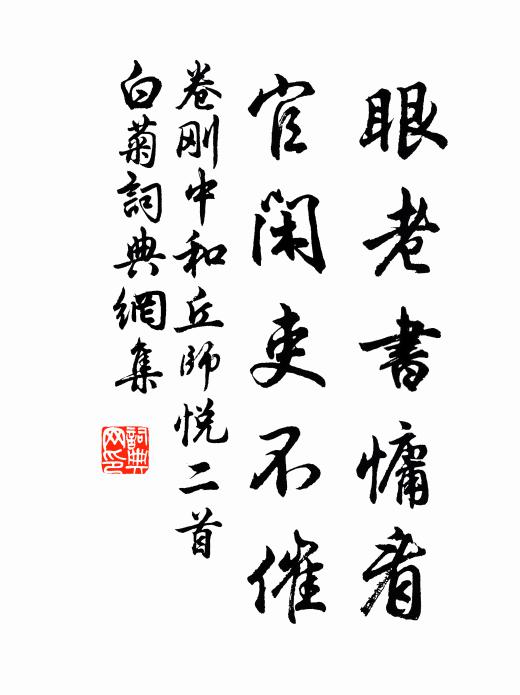 眼老書慵看
官閑吏不催
卷剛中和丘師悅二首
白菊詞典網集
詞典网印